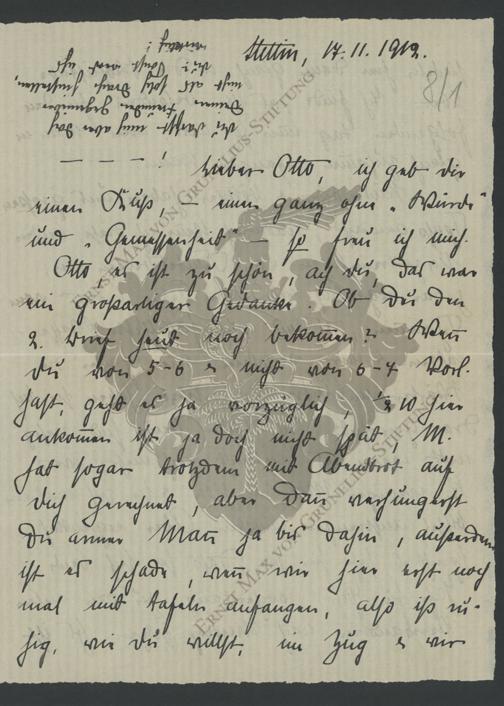 Stettin, 17.11.1912.
8/1
Du darfst mich aber das
Deinen Freunden gegenüber
nicht als
Du?
— — — !
Lieber Otto, ich geb dir
einen Kuß, – einen ganz ohne „Würde"
und „Gemessenheit" – so freu ich mich.
Otto es ist zu schön, ach du, das war
ein großartiger Gedanke. Ob du den
2. Brief heut noch bekommen? Wenn
Du von 5-6 u nicht von 6-7 Vorl.
hast, geht es ja vorzüglich, ½ 10 hier
ankommen ist ja doch nicht spät, M.
hat sogar trotzdem mit Abendbrot auf
Dich gerechnet, aber dann verhungerst
Du armer Mann ja bis dahin, außerdem
ist es schade, wenn wir hier erst noch
mal mit tafeln anfangen, also iß ru-
hig, wie Du willst, im Zug u wir
ERNST MAX VON GRUNELIUS-STIFTUNG
ERNST MAX VON GRUNELIUS-STIFTUNG